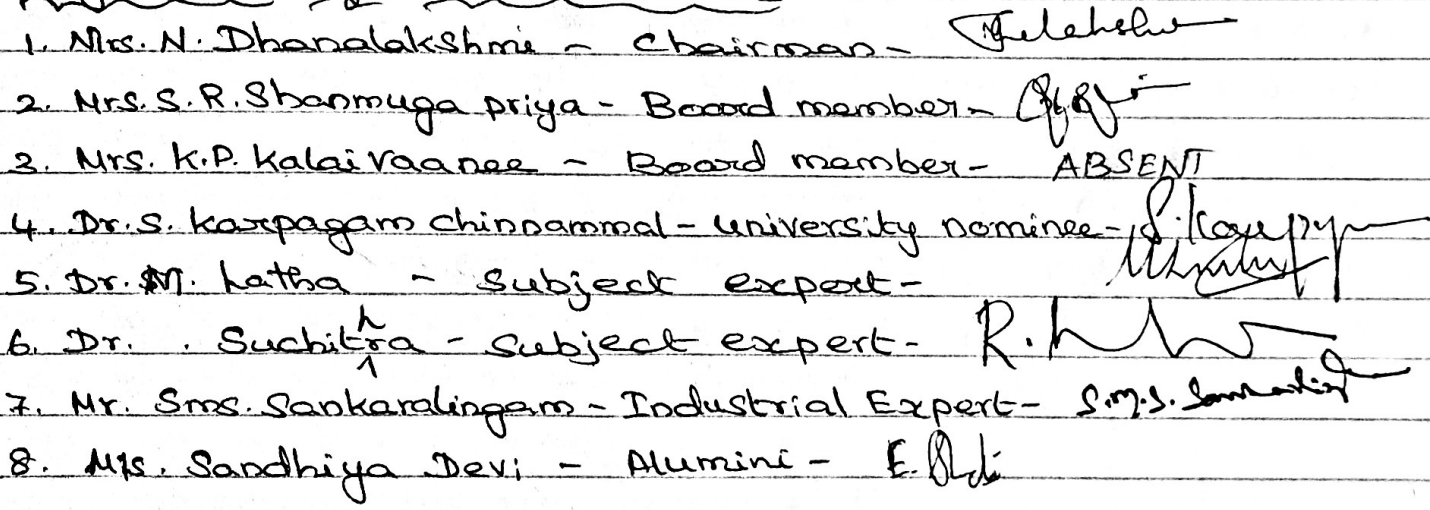 1. Mrs. N. Dhanalakshmi - Chairman -
2. Mrs. S. R. Shanmuga priya - Board member -
3. Mrs. K.P. Kalaivaanee - Board member - ABSENT
4. Dr. S. Karpagam Chinnammal - University nominee -
5. Dr. M. Latha - Subject expert -
6. Dr. . Suchithra - Subject expert - R.
7. Mr. Sms. Sankaralingam - Industrial Expert - S.M.S.
8. Ms. Sandhiya Devi - Alumini - E.